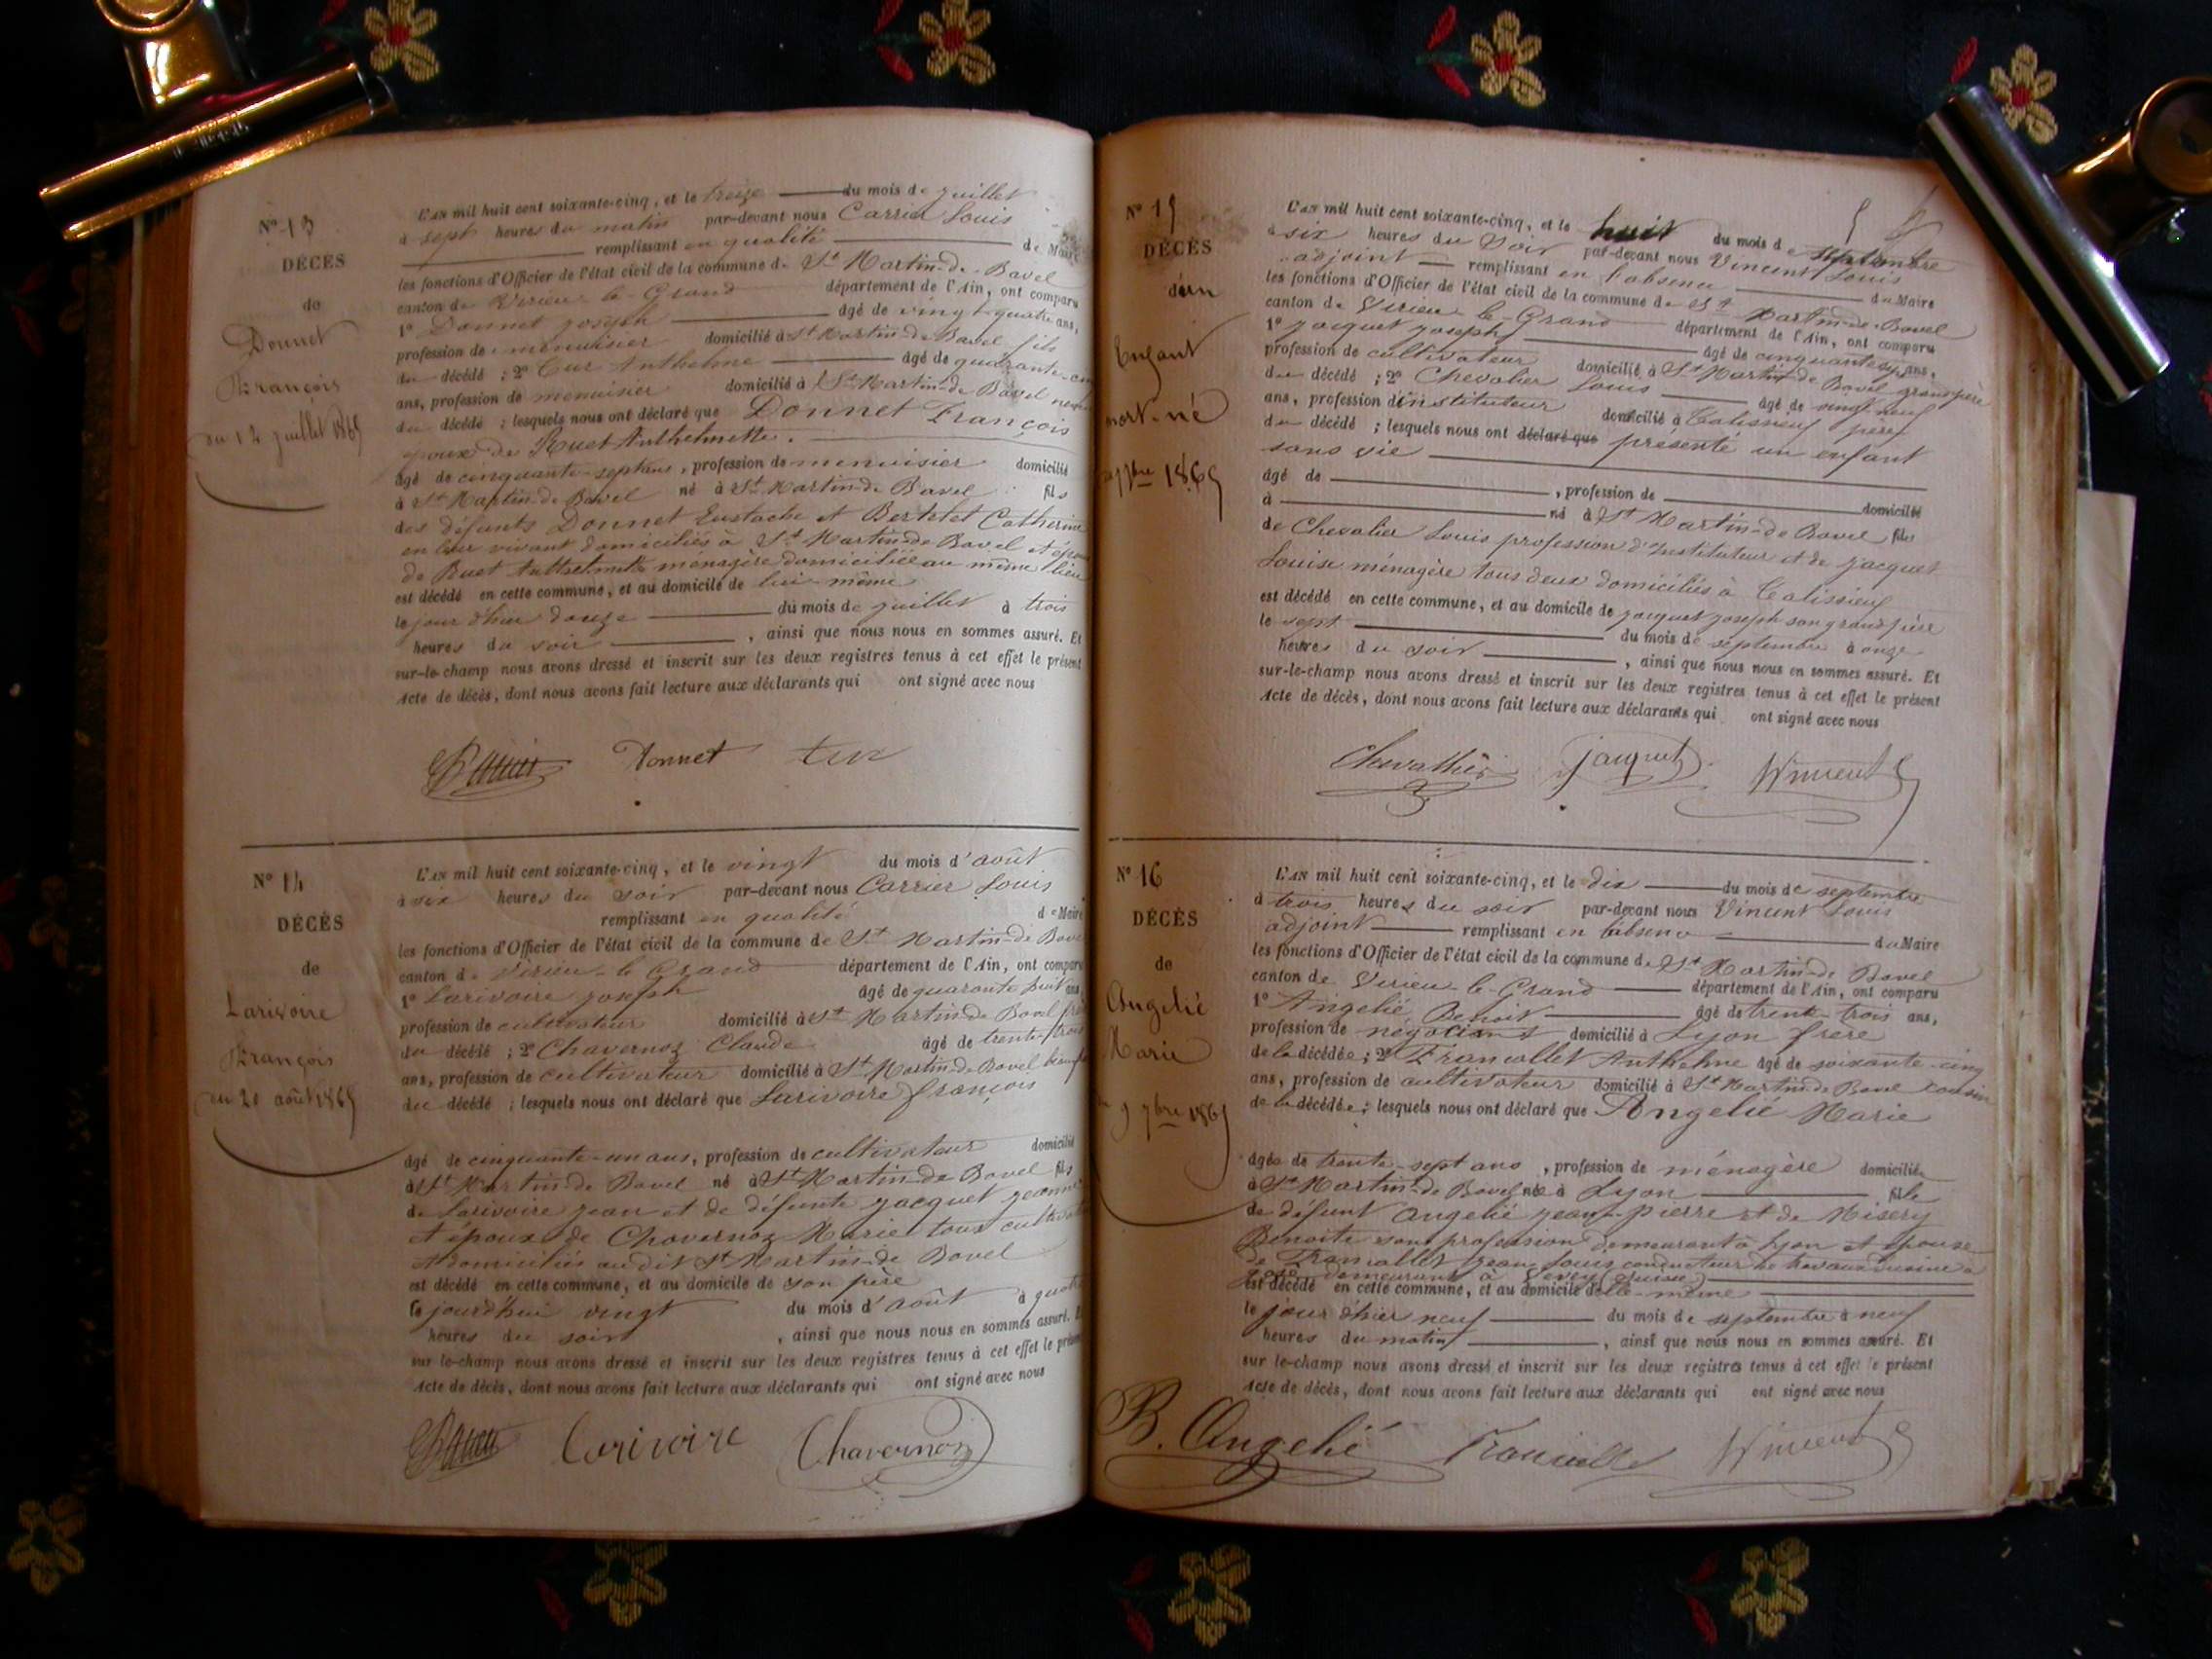 N° 13
DÉCÈS
de
Donnet
François
du 12 juillet 1865
L'AN mil huit cent soixante-cinq, et le treize du mois de juillet
à sept heures du matin par-devant nous Carrier Louis
remplissant en qualité de Maire
les fonctions d'Officier de l'état civil de la commune de St Martin-de-Bavel
canton de Virieu-le-Grand département de l'Ain, ont comparu
1° Donnet joseph âgé de vingt-quatre ans,
profession de menuisier domicilié à St Martin-de Bavel fils
du décédé ; 2° Cur Anthelme âgé de quarante-cinq
ans, profession de menuisier domicilié à St Martin-de Bavel neveu
du décédé ; lesquels nous ont déclaré que Donnet François
époux de Ruet Anthelmette.
âgé de cinquante-sept ans, profession de menuisier domicilié
à St Martin-de Bavel né à St Martin-de Bavel fils
des défunts Donnet Eustache et Bertelet Catherine
en leur vivant domiciliés à St Martin-de Bavel et époux
de Ruet Anthelmette ménagère domiciliée au même lieu
est décédé en cette commune, et au domicile de lui-même
le jour d'hier douze du mois de juillet à trois
heures du soir, ainsi que nous nous en sommes assuré. Et
sur-le-champ nous avons dressé et inscrit sur les deux registres tenus à cet effet le présent
Acte de décès, dont nous avons fait lecture aux déclarants qui ont signé avec nous
Donnet Cur
N° 14
DÉCÈS
de
Larivoire
François
du 20 août 1865
L'AN mil huit cent soixante-cinq, et le vingt du mois d'août
à six heures du soir par-devant nous Carrier Louis
remplissant en qualité de Maire
les fonctions d'Officier de l'état civil de la commune de St Martin-de Bavel
canton de Virieu-le Grand département de l'Ain, ont comparu
1° Larivoire joseph âgé de quarante huit ans,
profession de cultivateur domicilié à St Martin-de Bavel frère
du décédé ; 2° Chavernoz Claude âgé de trente-trois
ans, profession de cultivateur domicilié à St Martin-de Bavel
du décédé ; lesquels nous ont déclaré que Larivoire françois
âgé de cinquante-un ans, profession de cultivateur domicilié
à St Martin-de Bavel né à St Martin-de Bavel fils
de Larivoire jean et de défunte jacquet jeanne
et époux de Chavernoz Marie tous cultivateurs
et domiciliés au dit St Martin-de Bavel
est décédé en cette commune, et au domicile de son père
le jourd'hui vingt du mois d'août à quatre
heures du soir, ainsi que nous nous en sommes assuré. Et
sur-le-champ nous avons dressé et inscrit sur les deux registres tenus à cet effet le présent
Acte de décès, dont nous avons fait lecture aux déclarants qui ont signé avec nous
Larivoire Chavernoz
N° 15
DÉCÈS
d'un
Enfant
mort-né
7bre 1865
L'AN mil huit cent soixante-cinq, et le huit du mois de septembre
à six heures du soir par-devant nous Vincent Louis
adjoint remplissant en l'absence du Maire
les fonctions d'Officier de l'état civil de la commune de St Martin-de-Bavel
canton de Virieu-le-Grand département de l'Ain, ont comparu
1° jacquet joseph âgé de cinquante sept ans,
profession de cultivateur domicilié à St Martin-de Bavel grand père
du décédé ; 2° Chevalier Louis âgé de vingt neuf
ans, profession d'instituteur domicilié à Talissieu père
du décédé ; lesquels nous ont déclaré que présenté un enfant
sans vie
âgé de , profession de domicilié
à né à St Martin-de Bavel fils
de Chevalier Louis profession d'Instituteur et de jacquet
Louise ménagère tous deux domiciliés à Talissieu
est décédé en cette commune, et au domicile de jacquet joseph son grand père
le sept du mois de septembre à onze
heures du soir, ainsi que nous nous en sommes assuré. Et
sur-le-champ nous avons dressé et inscrit sur les deux registres tenus à cet effet le présent
Acte de décès, dont nous avons fait lecture aux déclarants qui ont signé avec nous
Chevallier jacquet Vincent
N° 16
DÉCÈS
de
Angelié
Marie
9 7bre 1865
L'AN mil huit cent soixante-cinq, et le dix du mois de septembre
à trois heures du soir par-devant nous Vincent Louis
adjoint remplissant en l'absence du Maire
les fonctions d'Officier de l'état civil de la commune de St Martin-de Bavel
canton de Virieu-le-Grand département de l'Ain, ont comparu
1° Angelié Benoit âgé de trente-trois ans,
profession de négociant domicilié à Lyon frère
de la décédée ; 2° Francollet Anthelme âgé de soixante-cinq
ans, profession de cultivateur domicilié à St Martin-de Bavel cousin
de la décédée ; lesquels nous ont déclaré que Angelié Marie
âgée de trente-sept ans, profession de ménagère domiciliée
à St Martin-de Bavel née à Lyon fille
de défunt Angelié jean-pierre et de Misery
Benoite sans profession demeurant à Lyon et épouse
de Francollet jean Louis conducteur de travaux
demeurant à Vevey (Suisse)
est décédé en cette commune, et au domicile d'elle-même
le jour d'hier neuf du mois de septembre à neuf
heures du matin, ainsi que nous nous en sommes assuré. Et
sur-le-champ nous avons dressé et inscrit sur les deux registres tenus à cet effet le présent
Acte de décès, dont nous avons fait lecture aux déclarants qui ont signé avec nous
B. Angelié Vincent